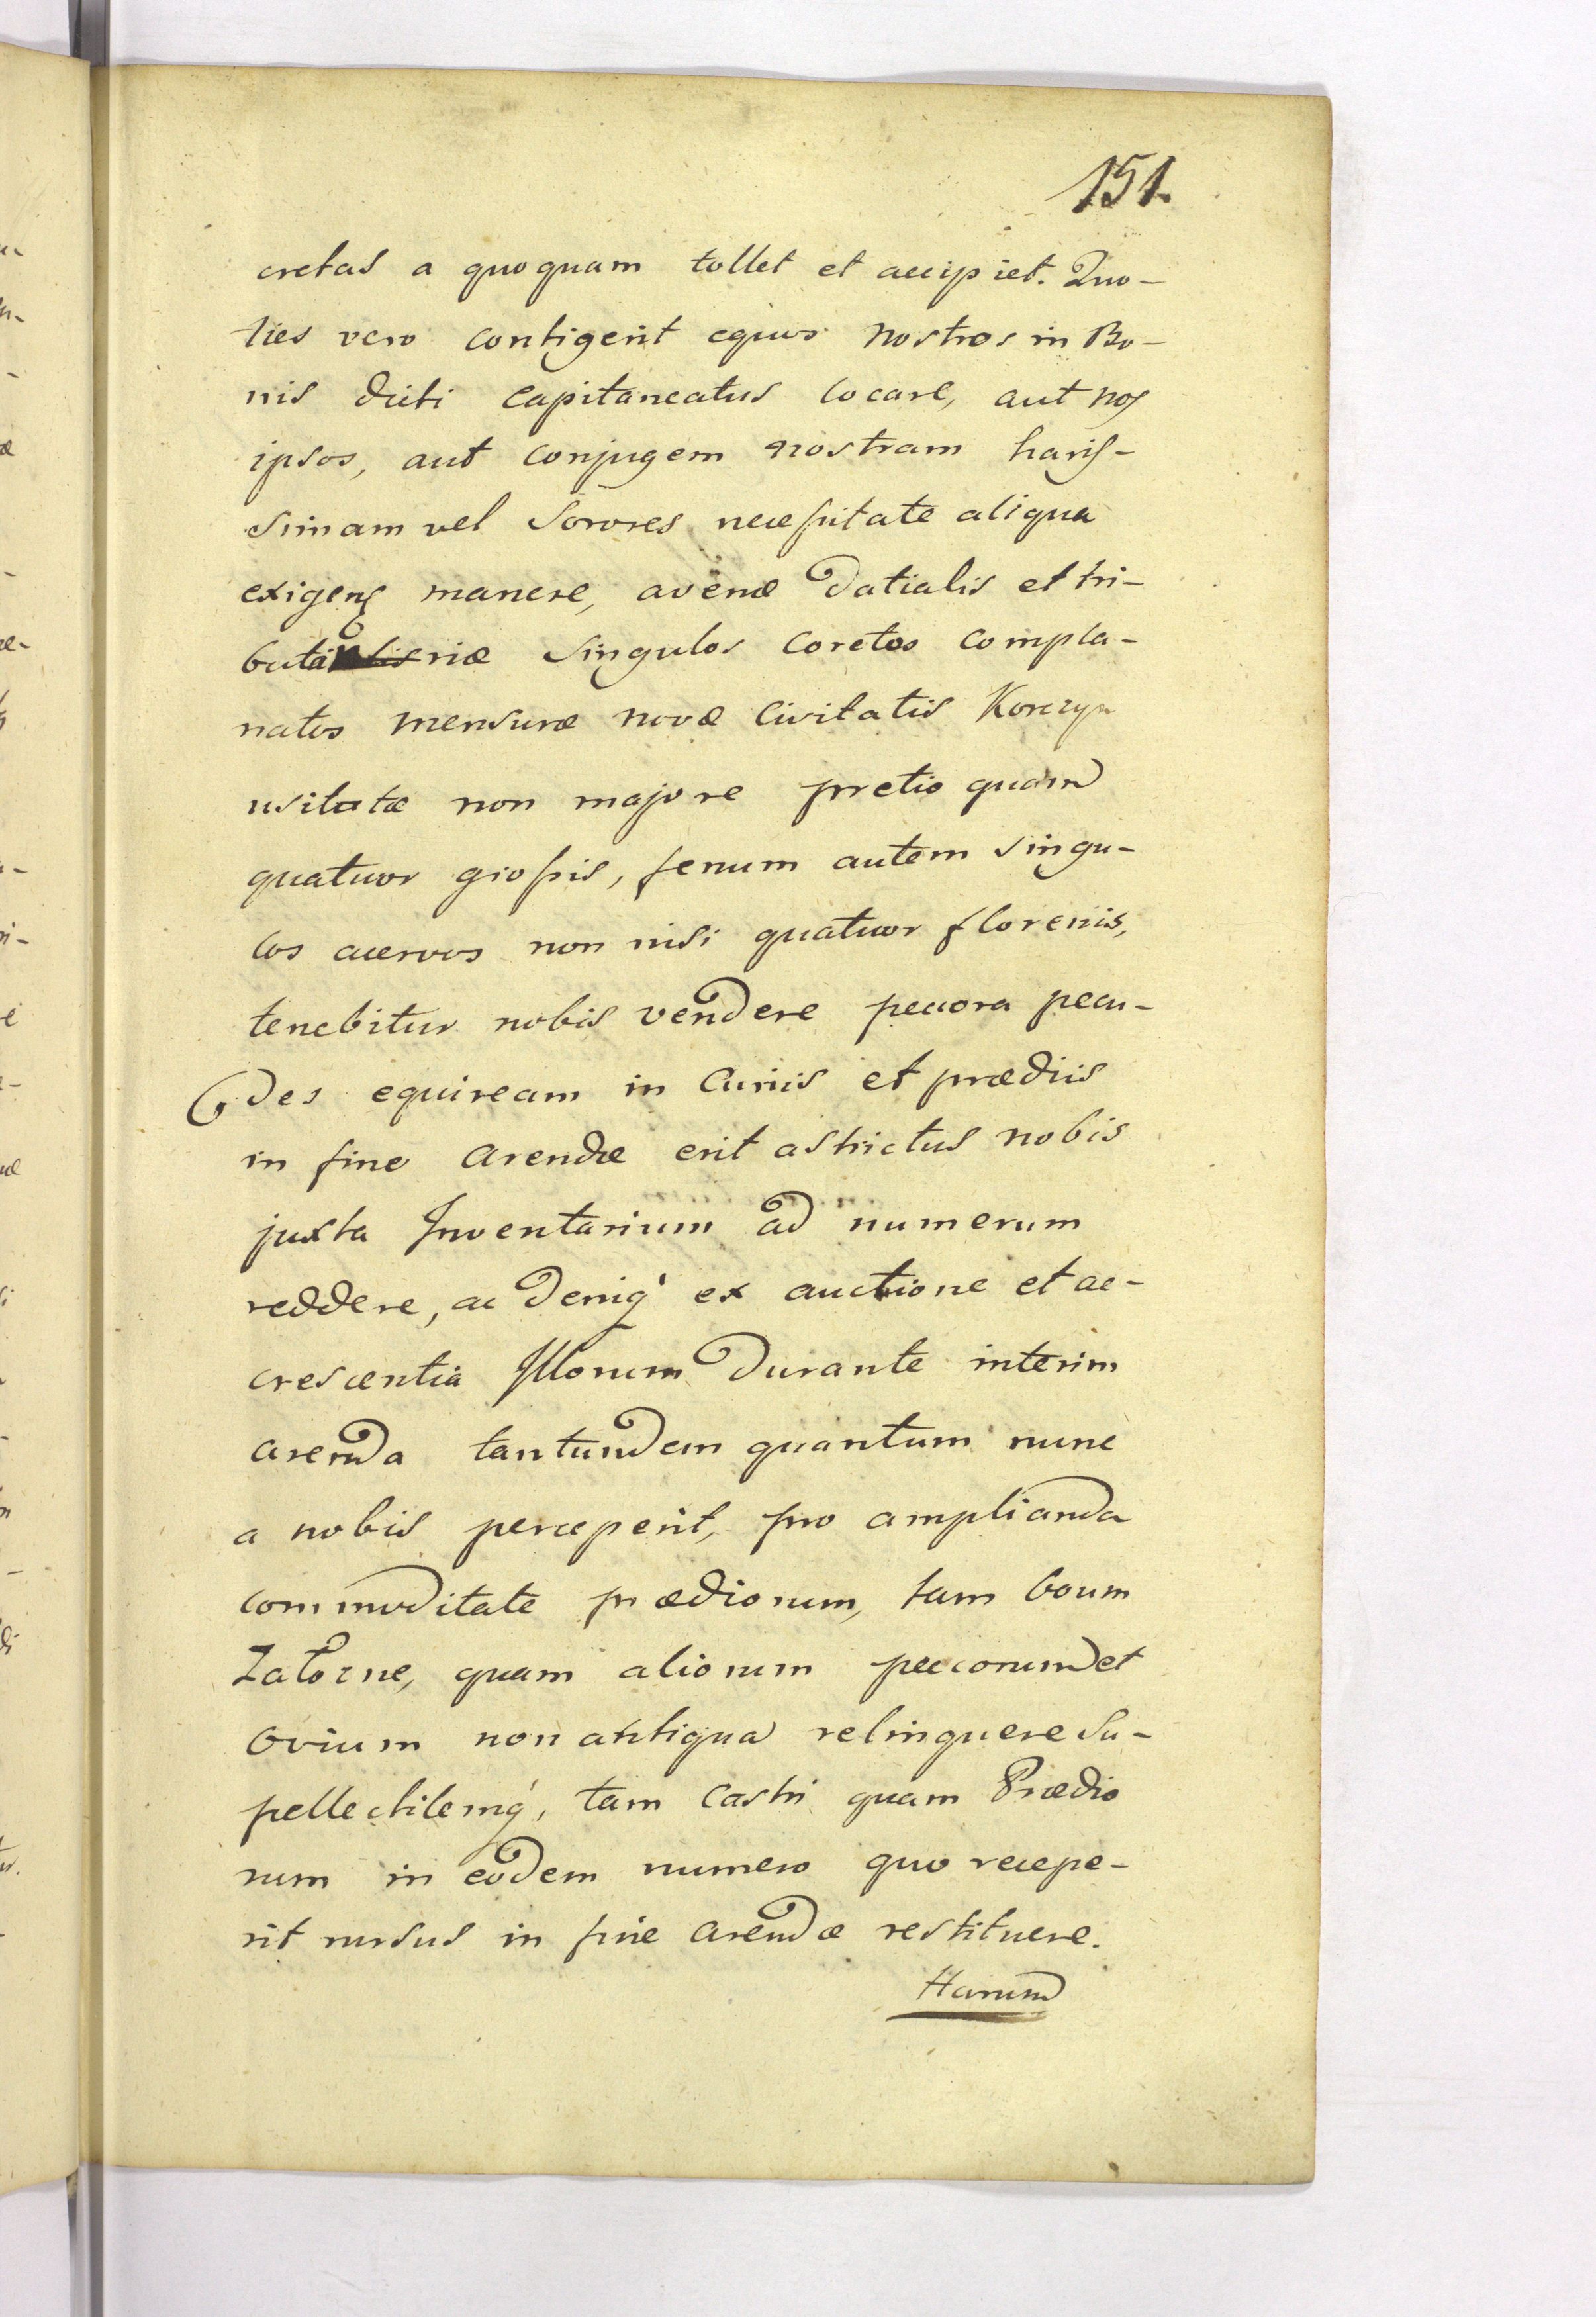 151.
cretas a quoquam tollet et accipiet. Quo-
ties vero contigerit equos nostros in Bo-
nis dicti Capitaneatus locare, aut nos
ipsos, aut conjugem nostram haris-
simam vel Sorores necessitate aliqua
exigen manere, avenæ datialis et tri-
butariæ singulos coretos compla-
natos mensuræ novæ Civitatis Korczyn
usitatæ non majore pretio quam
quatuor grossis, fenum autem singu-
los acervos non nisi quatuor florenis,
tenebitur nobis vendere peccora pecu-
des equiream in Curiis et prædiis
in fine Arendæ erit astrictus nobis
juxta Inventarium ad numerum
reddere, ac deniq' ex auctione et ac-
crescentia Illorum durante interim
arenda tantundem quantum nunc
a nobis perceperit, pro amplianda
commoditate prædiorum, tam boum
Zatorne, quam aliorum peccorum et
ovium non antiqua relinquere Su-
pellectilemq', tam Castri quam Prædio
rum in eodem numero quo recepe-
rit rursus in fine Arendæ restituere.
Harum